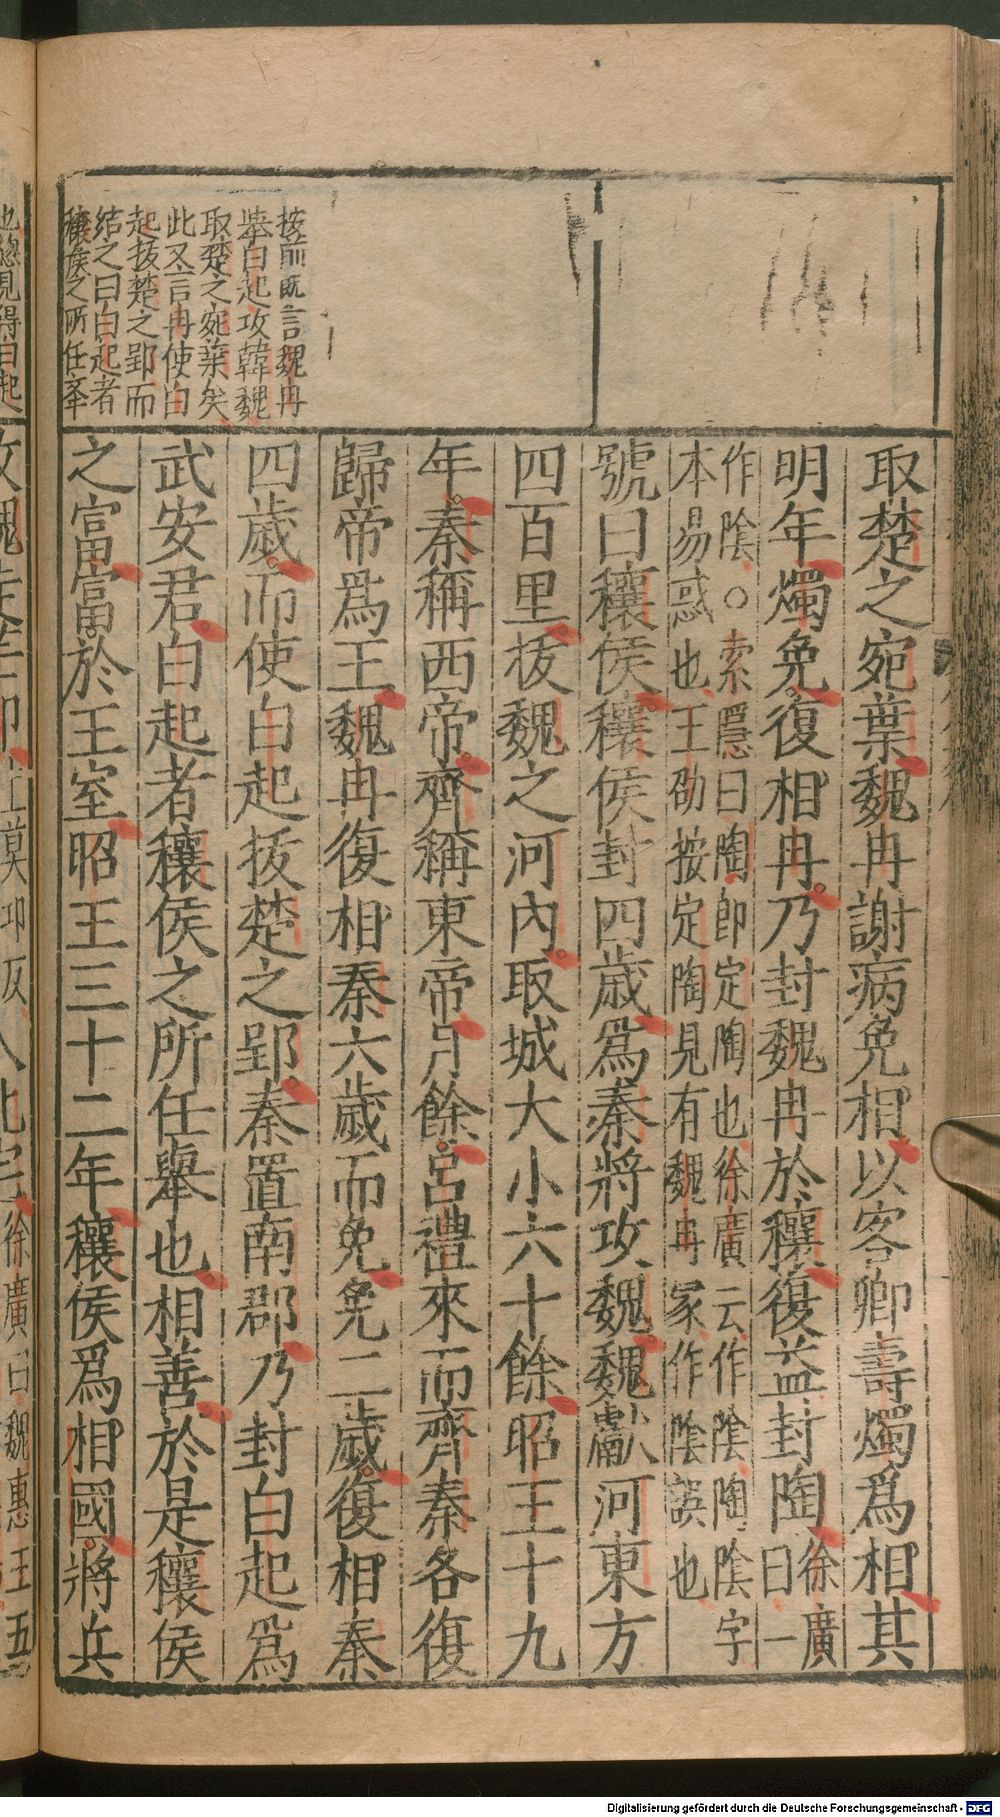 取楚之宛葉魏冉謝病免相以客卿壽燭爲相其
明年燭免復相冉乃封魏冉於穰復益封陶徐廣曰一
作陰○索隱曰陶即定陶也徐廣云作陰陶陰字
本易惑也王劭按定陶見有魏冉冢作陰誤也
號曰穰侯穰侯封四歲爲秦將攻魏魏獻河東方
四百里拔魏之河內取城大小六十餘昭王十九
年秦稱西帝齊稱東帝月餘呂禮來而齊秦各復
歸帝爲王魏冉復相秦六歲而免免二歲復相秦
四歲而使白起拔楚之郢秦置南郡乃封白起爲
武安君白起者穰侯之所任舉也相善於是穰侯
之富富於王室昭王三十二年穰侯爲相國將兵
按前既言魏冉
舉白起攻韓魏
取楚之宛葉矣
此又言冉使白
起拔楚之郢而
結之曰白起者
穰侯之所任舉
也總見得白起
Digitalisierung gefördert durch die Deutsche Forschungsgemeinschaft - DFG